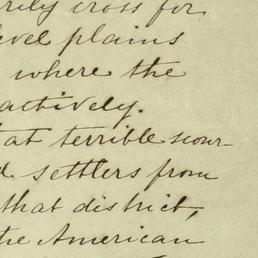 rily cross for
evel plains
where the
actively.
at terrible scour-
d settlers from
that district,
he American